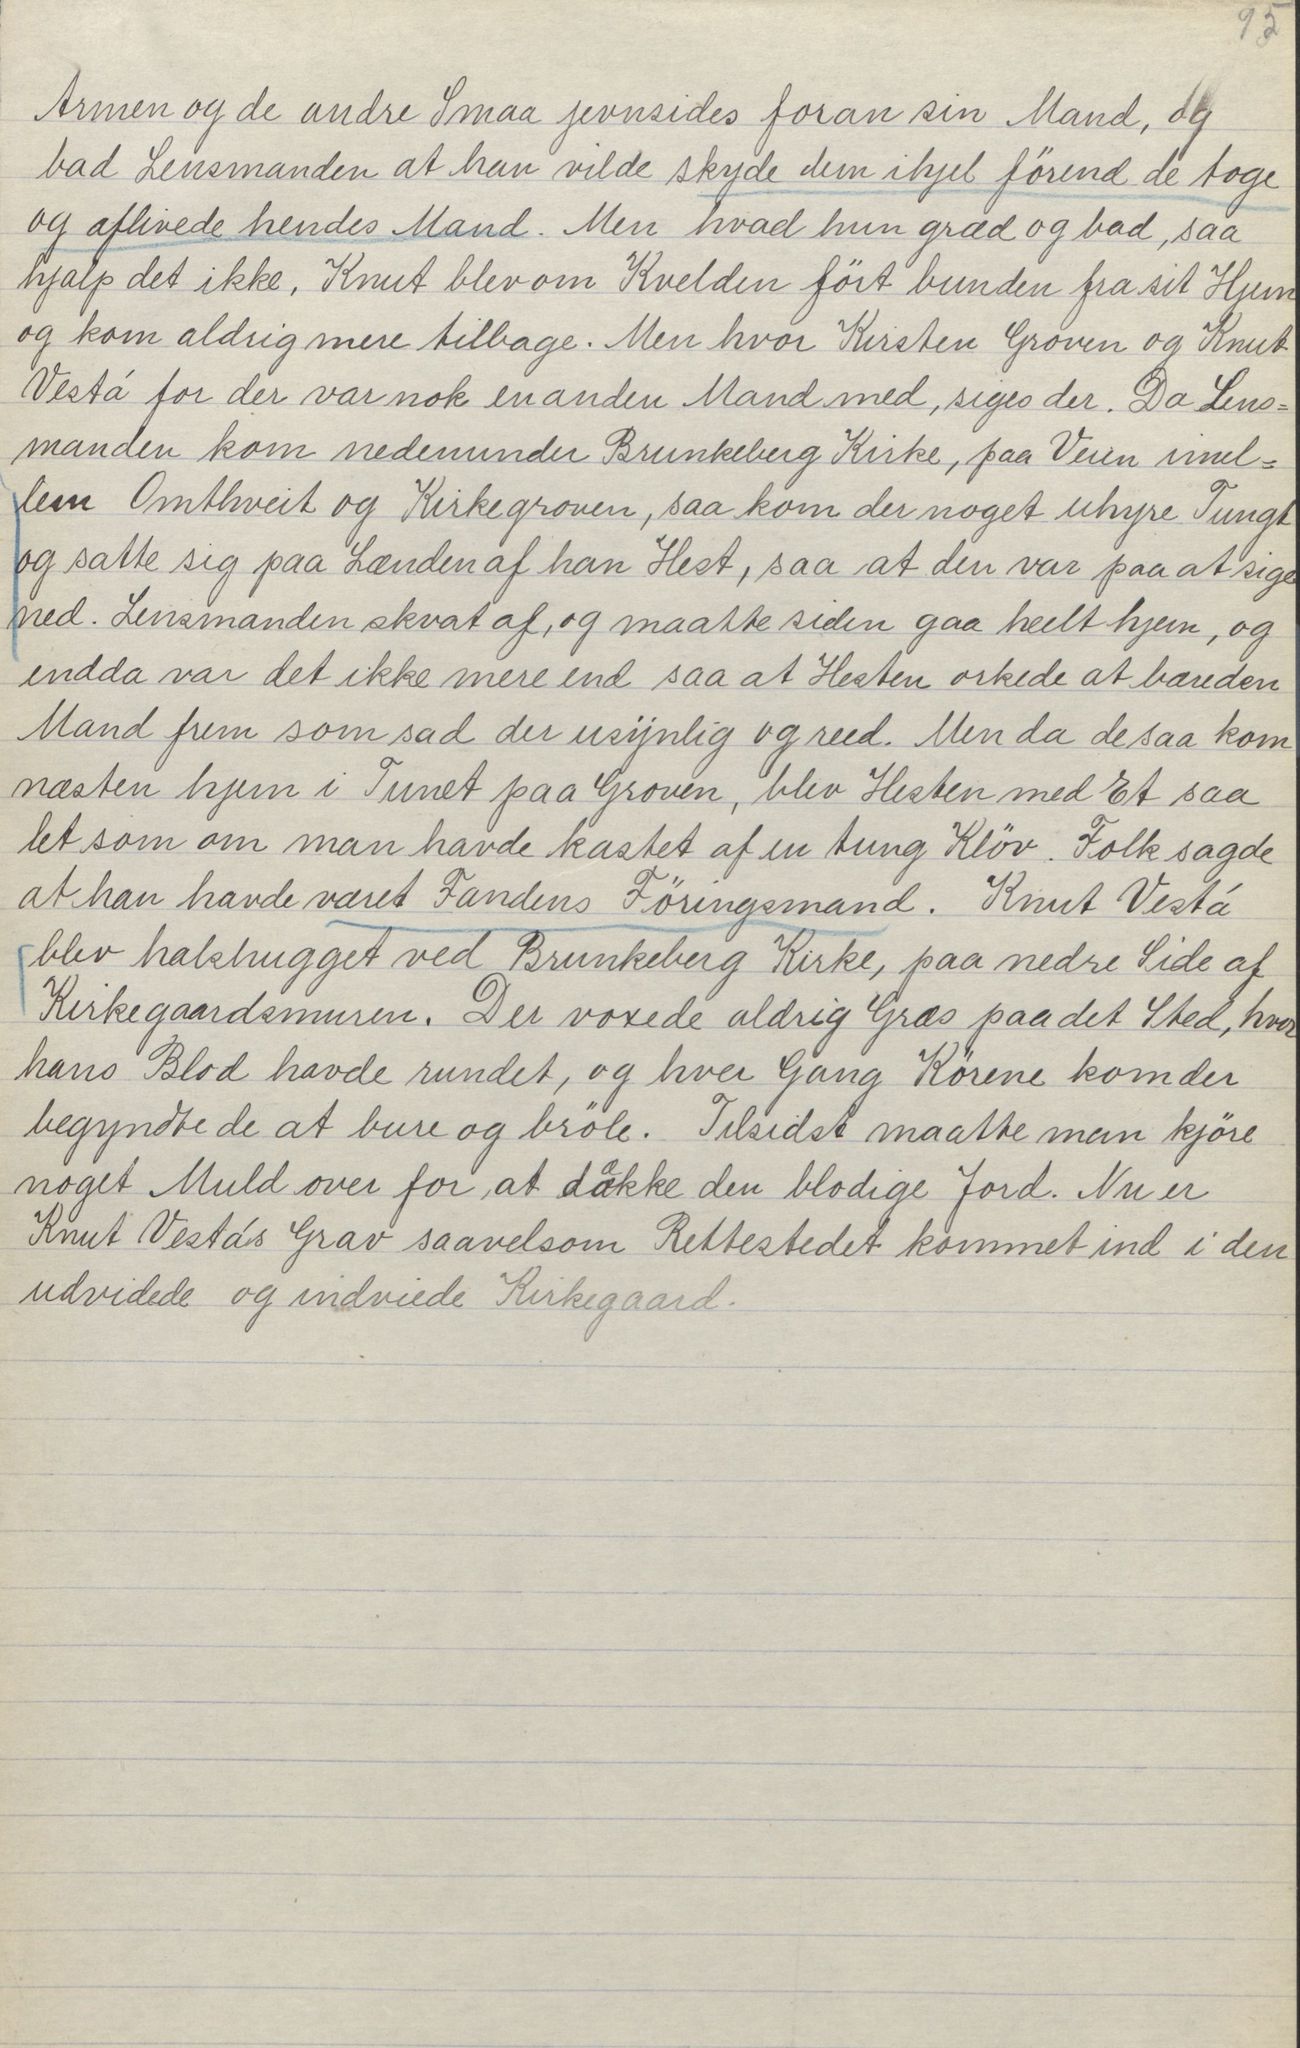 95
Armen og de andre Smaa jevnsides foran sin Mand, og
bad Lensmanden at han vilde skyde dem ihjel förend de toge
og aflivede hendes Mand. Men hvad hun græd og bad, saa
hjalp det ikke, Knut blev om Kvelden fört bunden fra sit Hjem
og kom aldrig mere tilbage. Men hvor Kirsten Groven og Knut
Vestá for der var nok en anden Mand med, siges der. Da Lens=
manden kom nedenunder Brunkeberg Kirke, paa Veien imel=
lem Omthveit og Kirkegroven, saa kom der noget uhyre Tungt
og satte sig paa Lænden af han Hest, saa at den var paa at sige
ned. Lensmanden skvat af, og maatte siden gaa heelt hjem, og
endda var det ikke mere end saa at Hesten orkede at bære den
Mand frem som sad der usijnlig og reed. Men da de saa kom
næsten hjem i Tunet paa Groven, blev Hesten med Et saa
let som om man havde kastet af en tung Klöv. Folk sagde
at han havde været Fandens Föringsmand. Knut Vestá
blev halshugget ved Brunkeberg Kirke, paa nedre Side af
Kirkegaardsmuren. Der voxede aldrig Græs paa det Sted, hvor
hans Blod havde rundet, og hver Gang Körene kom der
begyndte de at bure og bröle. Tilsidst maatte man kjöre
noget Muld over for at dække den blodige Jord. Nu er
Knut Vestá's Grav saavelsom Rettestedet kommet ind i den
udvidede og indviede Kirkegaard.